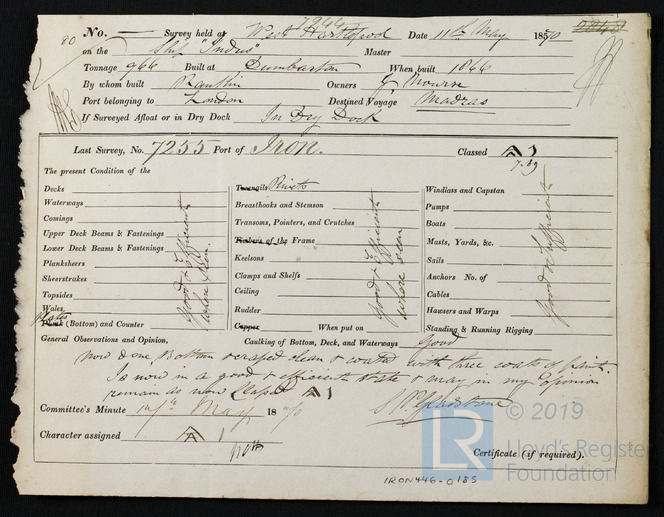 80
No. — Survey held at West Hartlepool Date 11th May 1870
7244
on the Ship "Indus" Master
Tonnage 966 Built at Dumbarton When built 1866
By whom built Rankin Owners J. Nourse
Port belonging to London Destined Voyage Madras
If Surveyed Afloat or in Dry Dock In Dry Dock
Last Survey, No. 7255 Port of Iron. Classed A 1
7.69
The present Condition of the
Decks
Waterways
Comings
Upper Deck Beams & Fastenings
Lower Deck Beams & Fastenings
Planksheers
Sheerstrakes
Topsides
Wales
Plates
Plank (Bottom) and Counter
Good & Efficient
where seen.
Treenails Rivets
Breasthooks and Stemson
Transoms, Pointers, and Crutches
Timbers of the Frame
Keelsons
Clamps and Shelfs
Ceiling
Rudder
Copper When put on
Good & Efficient
where seen
Windlass and Capstan
Pumps
Boats
Masts, Yards, &c.
Sails
Anchors No. of
Cables
Hawsers and Warps
Standing & Running Rigging
Good & Efficient
General Observations and Opinion, Caulking of Bottom, Deck, and Waterways Good
Now done Bottom scraped clean & coated with three coats of paint.
Is now in a good & efficient state & may in my opinion
remain as now Classed A 1
Committee's Minute 17th May 1870
Character assigned A 1
Certificate (if required).
© 2019
LR Lloyd's Register
Foundation
IRON446-0185